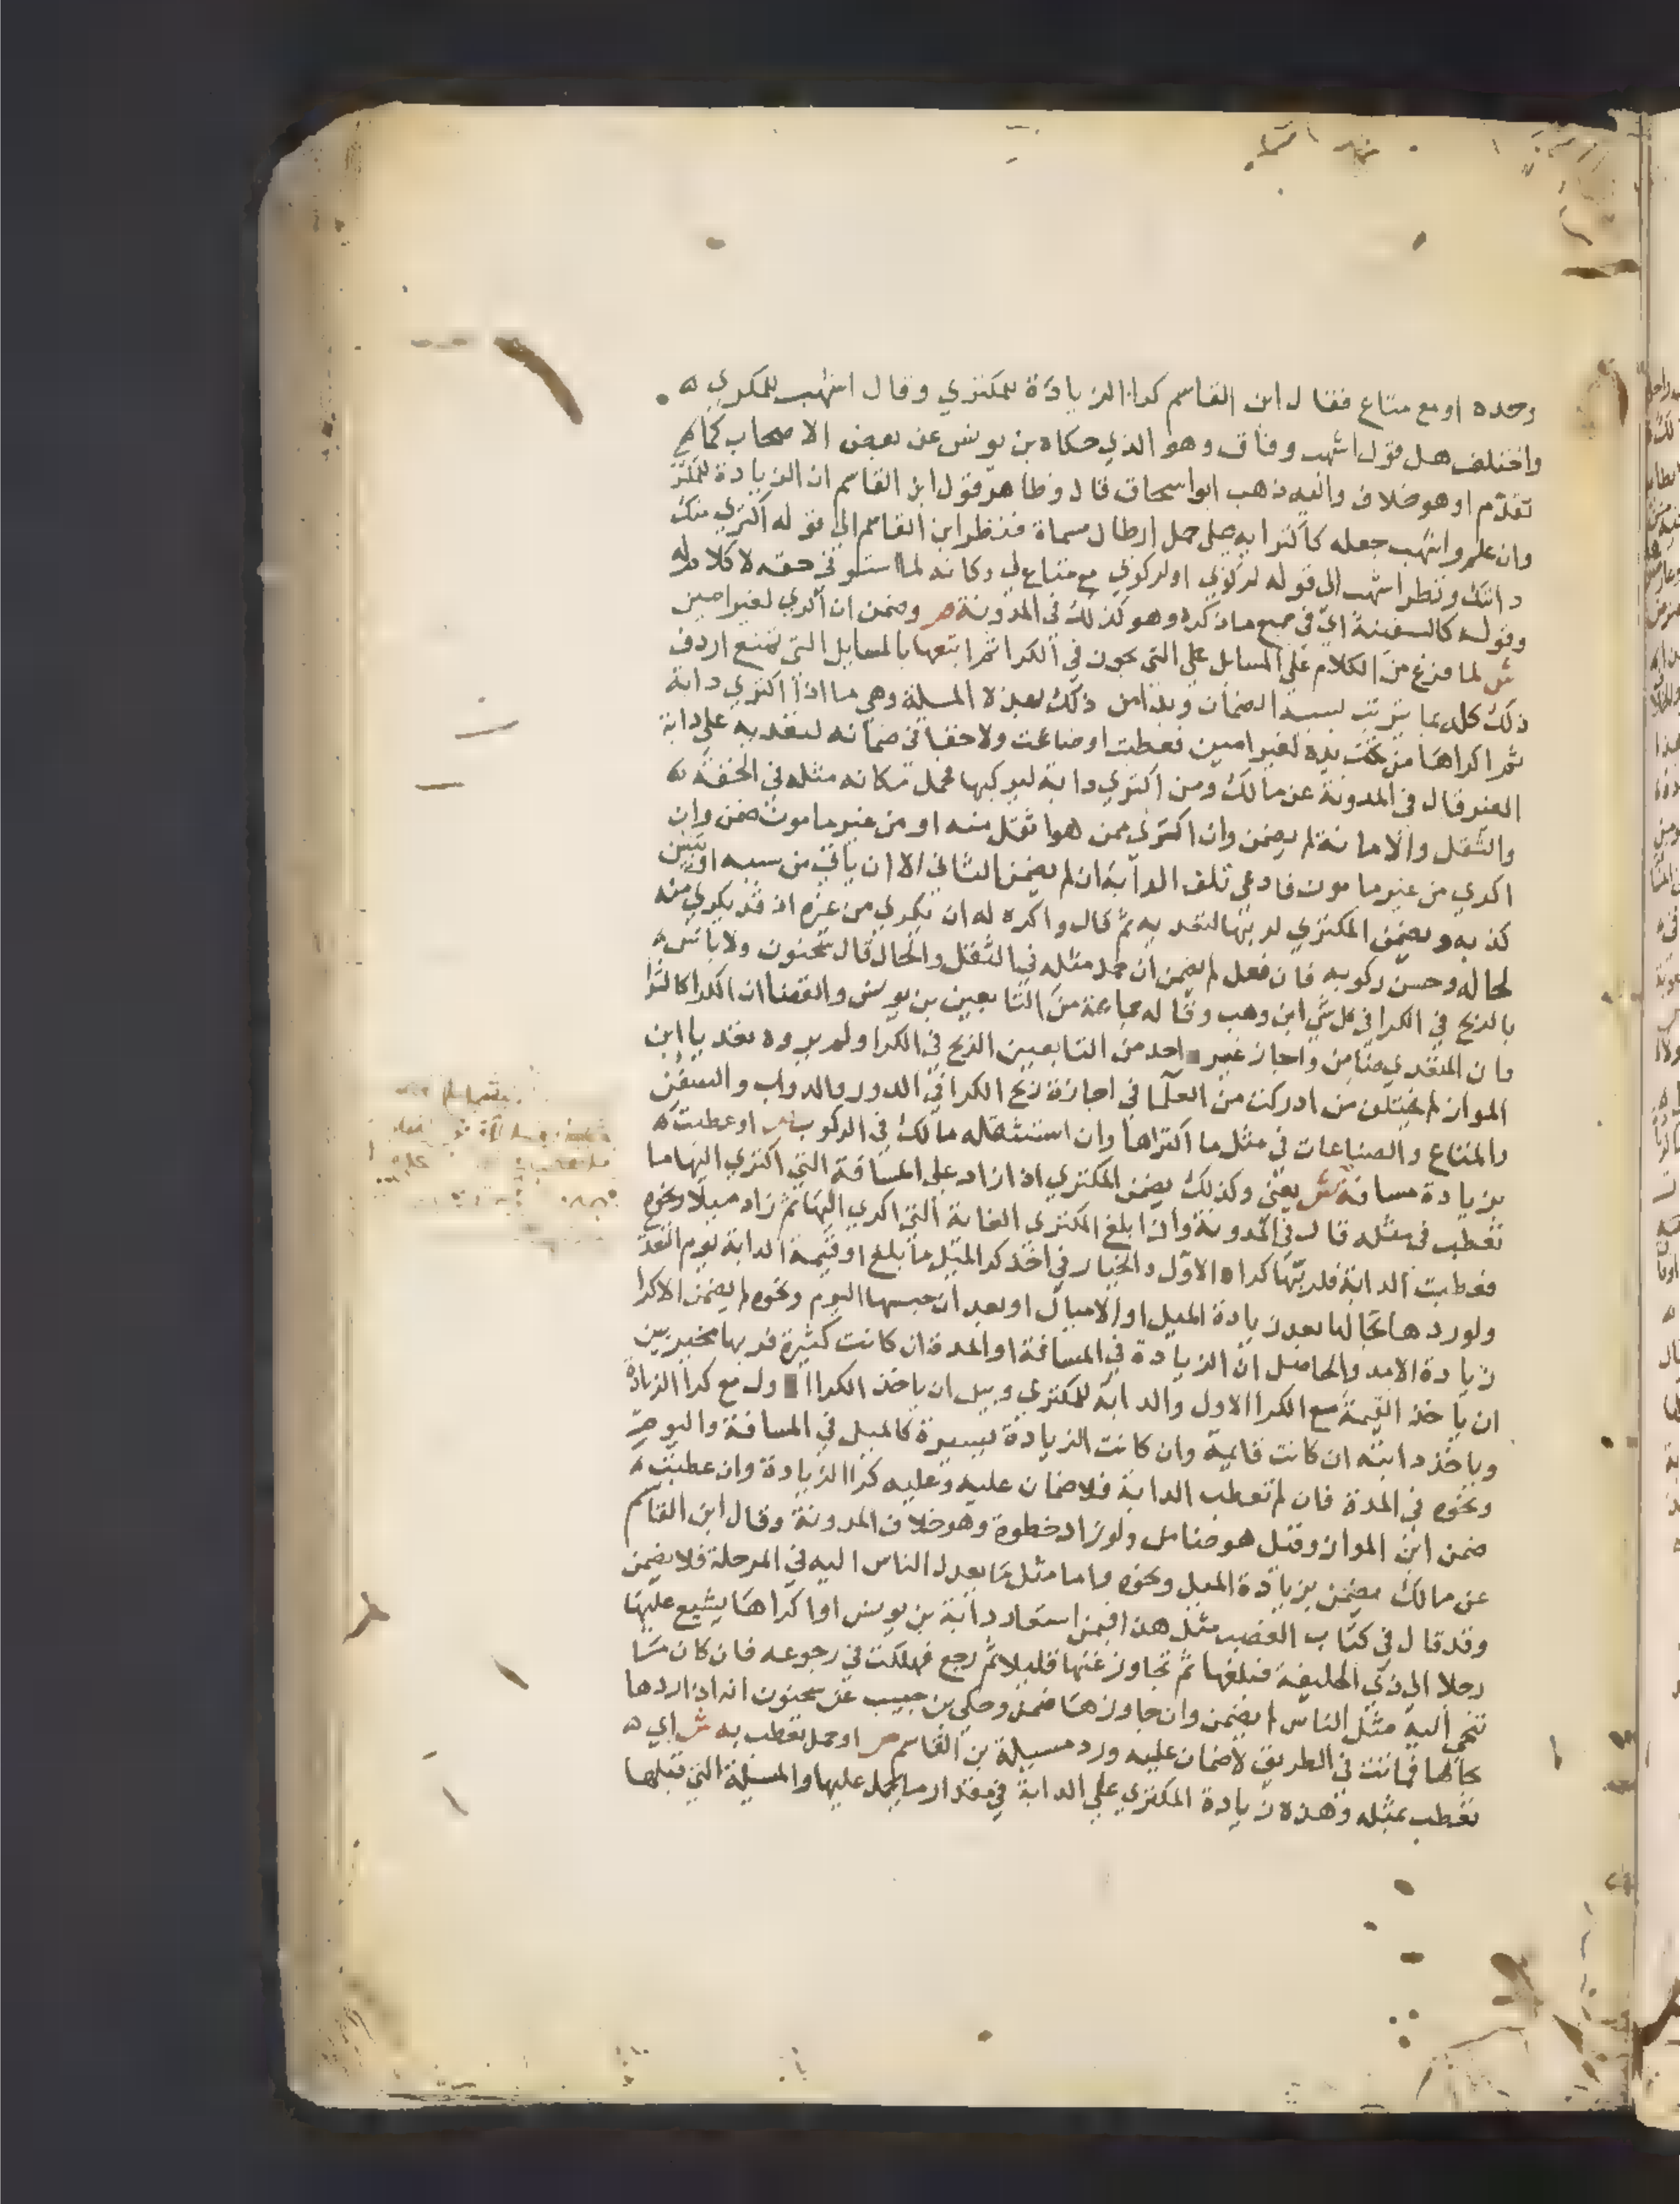 وحده او مع متاع فقال ابن القاسم كرا الزيادة للمكتري وقال اشهب للمكري
واختلف هل قول اشهب وفاق وهو الذي حكاه بن يونس عن بعض الاصحاب كما
تقدم او هو خلاف واليه ذهب ابو اسحاق قال وظاهر قول ابن القاسم ان الزيادة للمكتر
وان علم واشهب جعله كاكترايه على حمل ارطال مسماة فنظر ابن القاسم الي قوله اكتري منك
دابتك ونظر اشهب الى قوله لركوبي او لركوبي مع متاع لي وكانه لما استوفى حقه لا كلام له
وقوله كالسفينة اي في جميع ما ذكره وهو كذلك في المدونة ص وضمن ان اكري لغير امين
ش لما فرغ من الكلام علي المسايل التي يجوز في الكرا ثم اتبعها بالمسايل التي تمنع اردف
ذلك كله بما يترتب بسببه الضمان وبدا من ذلك بهذه المسلة وهي ما اذا اكتري دابة
ثم اكراها من تحت يده لغير امين فعطبت او ضاعت ولا خفا في ضمانه لتعديه علي دابة
الغير قال في المدونة عن مالك ومن اكتري دابة ليركبها فحمل مكانه مثله في الخفة
والثقل والامانة لم يضمن وان اكترى ممن هو اثقل منه او من غير مامون ضمن وان
اكري من غير مامون فادعى تلف الدابة لم يضمن الثاني الا ان ياتي من سببه او يتبين
كذبه ويضمن المكتري لربها لتعديه ثم قال واكره له ان يكري من غيره اذ قد يكري منه
لحاله وحسن ركوبه فان فعل لم يضمن ان حمل مثله في الثقل والحال قال سحنون ولا باس
بالربح في الكرا في كل شي ابن وهب وقاله جماعة من التابعين بن يونس والقضا ان الكرا كالشرا
وان المتعدي ضامن واجاز غير احد من التابعين الربح في الكرا ولم يروه تعديا ابن
المواز لم يختلف من ادركت من العلما في اجازة ربح الكرا في الدور والدواب والسفن
والمتاع والصناعات في مثل ما اكتراها وان استثقله مالك في الركوب ص او عطبت
بزيادة مسافة ش يعني وكذلك يضمن المكتري اذا زاد على المسافة التي اكتري اليها ما
تعطب في مثله قال في المدونة واذا بلغ المكتري الغاية التي اكري اليها ثم زاد ميلا ونحوه
فعطبت الدابة فلربها كراه الاول والخيار في اخذ كرا المثل ما بلغ او قيمة الدابة يوم التعد
ولو ردها بحالها بعد زيادة الميل او الاميال او بعد ان حبسها اليوم ونحوه لم يضمن الا كرا
زيادة الامد والحاصل ان الزيادة في المسافة او المدة ان كانت كثيرة فربها مخير بين
ان ياخذ القيمة مع الكرا الاول والدابة للمكتري وبين ان ياخذ الكرا ول مع كرا الزيادة
وياخذ دابته ان كانت قايمة وان كانت الزيادة يسيرة كالميل في المسافة واليوم
ونحوه في المدة فان لم تعطب الدابة فلا ضمان عليه وعليه كرا الزيادة وان عطبت
ضمن ابن المواز وقيل هو ضامن ولو زاد خطوة وهو خلاف المدونة وقال ابن القاسم
عن مالك يضمن بزيادة الميل ونحوه واما مثل ما يعدل الناس اليه في المرحلة فلا يضمن
وقد قال في كتاب الغصب مثل هذا فيمن استعار دابة بن يونس او اكراها يشيع عليها
رجلا الي ذي الحليفة فبلغها ثم تجاوز عنها قليلا ثم رجع فهلكت في رجوعه فان كان مما
تنحي اليه مثل الناس لم يضمن وان جاوزها ضمن وحكي بن حبيب عن سحنون انه اذا ردها
بحالها فماتت في الطريق لا ضمان عليه ورد مسيلة بن القاسم ص او حمل تعطب به ش اي
تعطب بمثله وهذه زيادة المكتري علي الدابة في مقدار ما يحمل عليها والمسيلة التي قبلها